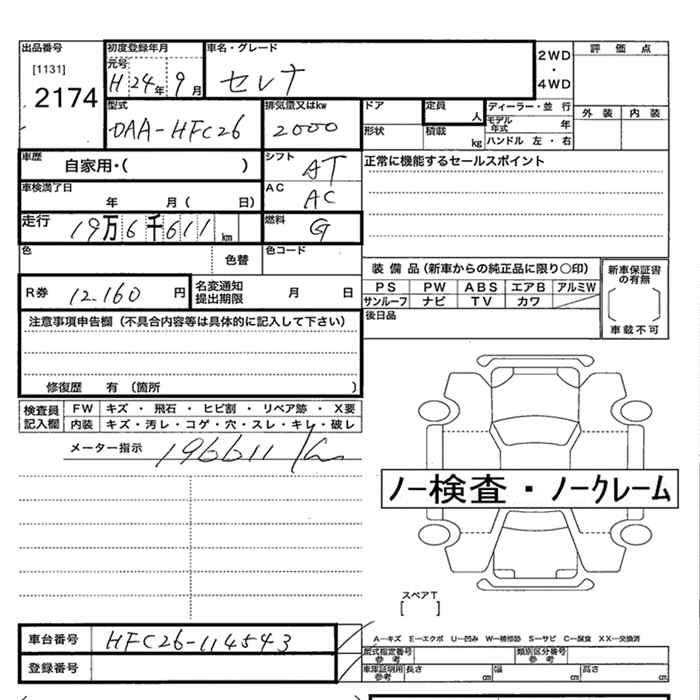 出品番号 初度登録年月 車名・グレード 2WD ・ 4WD 評価点
[1131] 元号 H 24年 9月 セレナ
2174
型式 排気量又はkw ドア 定員 人 ディーラー・並行 外装 内装
DAA-HFC26 2000 形状 積載 kg モデル年式 年
ハンドル 左・右
車歴 自家用・( ) シフト AT 正常に機能するセールスポイント
車検満了日 年 月( 日) AC AC
走行 19万6千611km 燃料 G
色 色替 色コード
装備品(新車からの純正品に限り○印) 新車保証書の有無
R券 12.160円 名変通知提出期限 月 日 PS PW ABS エアB アルミW
サンルーフ ナビ TV カワ
車載不可
注意事項申告欄(不具合内容等は具体的に記入して下さい) 後日品
修復歴 有(箇所 )
検査員記入欄 FW キズ・飛石・ヒビ割・リペア跡・X要
内装 キズ・汚レ・コゲ・穴・スレ・キレ・破レ
メーター指示 196611km
ノー検査・ノークレーム
スペアT
[ ]
車台番号 HFC26-114543
A―キズ E―エクボ U―凹み W―補修跡 S―サビ C―腐食 XX―交換済
登録番号 型式指定番号 参考 類別区分番号 参考
車庫証明用 参考 長さ cm 幅 cm 高さ cm